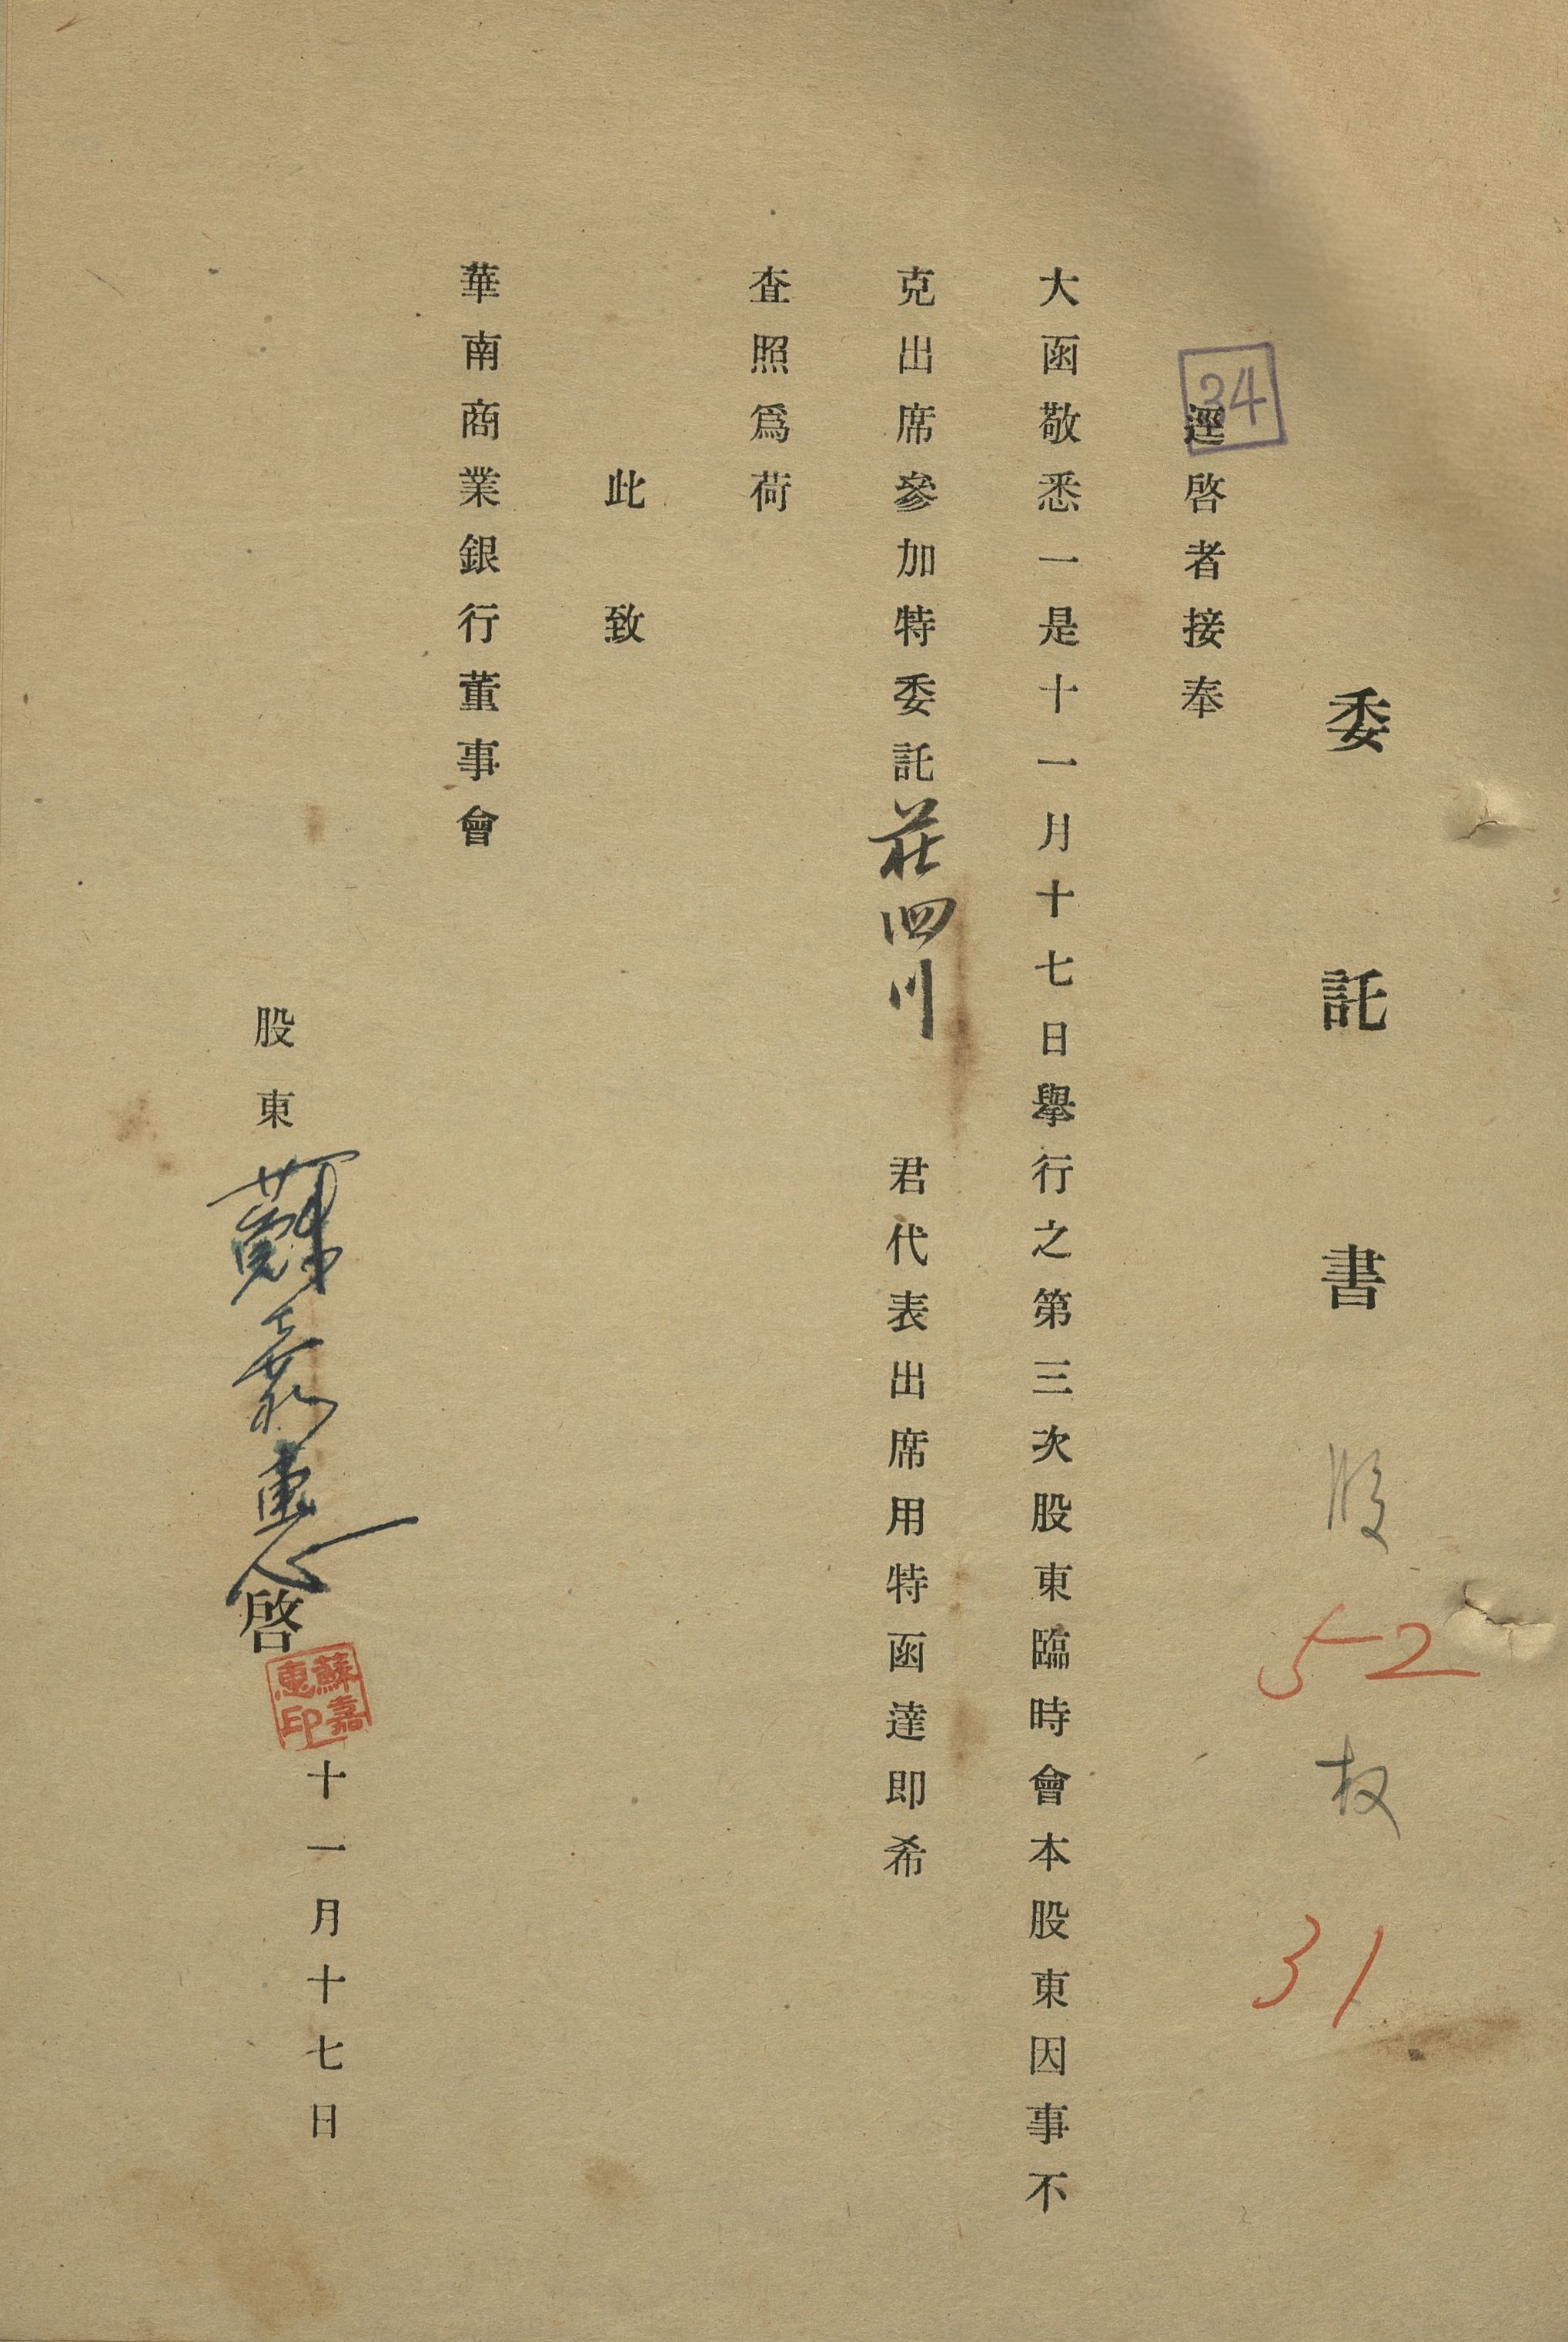 委託書 股 52 权 31
34
逕啓者接奉
大函敬悉一是十一月十七日擧行之第三次股東臨時會本股東因事不
克出席參加特委託莊四川君代表出席用特函達即希
查照爲荷
此致
華南商業銀行董事會
股東蘇嘉惠啓
蘇嘉惠印
十一月十七日